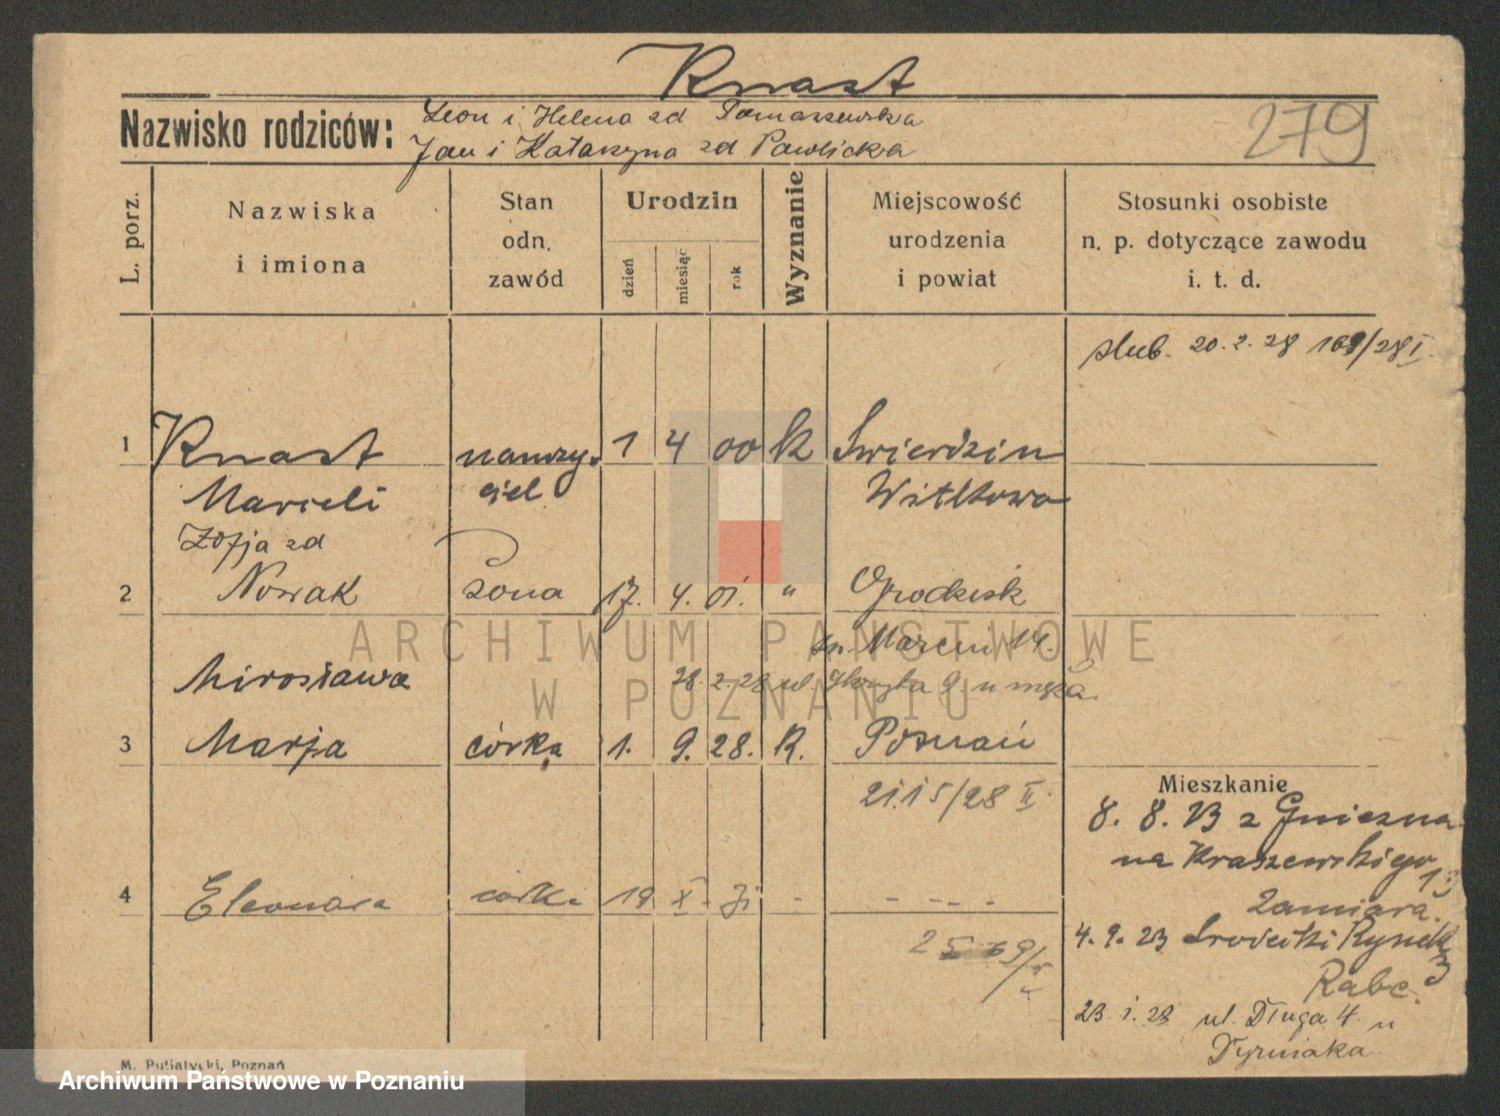 Knast
Nazwisko rodziców:
Leon i Helena zd Tomaszewska
Jan i Katarzyna zd Pawlicka
279
L. porz.
Nazwiska
i imiona
Stan
odn.
zawód
Urodzin
dzień
miesiąc
rok
Wyznanie
Miejscowość
urodzenia
i powiat
Stosunki osobiste
n. p. dotyczące zawodu
i. t. d.
slub. 20.2.28 169/28 I
1 Knast nauczy- 1 4 00 k Swierdzin
Marceli ciel Witkowo
Zofja zd
2 Nowak żona 17. 4. 01. " Grodzisk
św. Marcin 14.
Mirosława 28.2.28 ul. 9 u męża.
3 Marja córka 1. 9. 28. R. Poznań
2115/28 II
Mieszkanie
8. 8. 23 z Gniezna
na Kraszewskiego
13
4 Eleonora córka 19 X - - - - -
Zamiara.
4. 9. 23 Srodecki Rynek
3
Rabe.
23. 1. 28 ul. Długa 4 u
Tyrniaka
M. Putiatycki, Poznań
ARCHIWUM PAŃSTWOWE
W POZNANIU
Archiwum Państwowe w Poznaniu